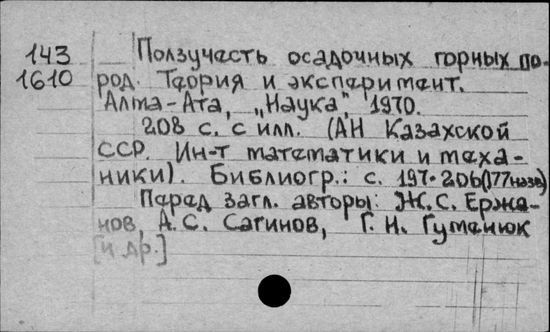 143 Ползучесть осадочных горных по-
1610 род. Теория и эксперимент.
Алма-Ата, „Наука", 1970.
208 с. с илл. (АН Казахской
ССР. Ин-т математики и меха-
ники). Библиогр.: с. 197-206 (177 назв)
Перед загл. авторы: Ж.С. Ержа-
нов, А.С. Сагинов, Г.Н. Гуменюк
[и др.]